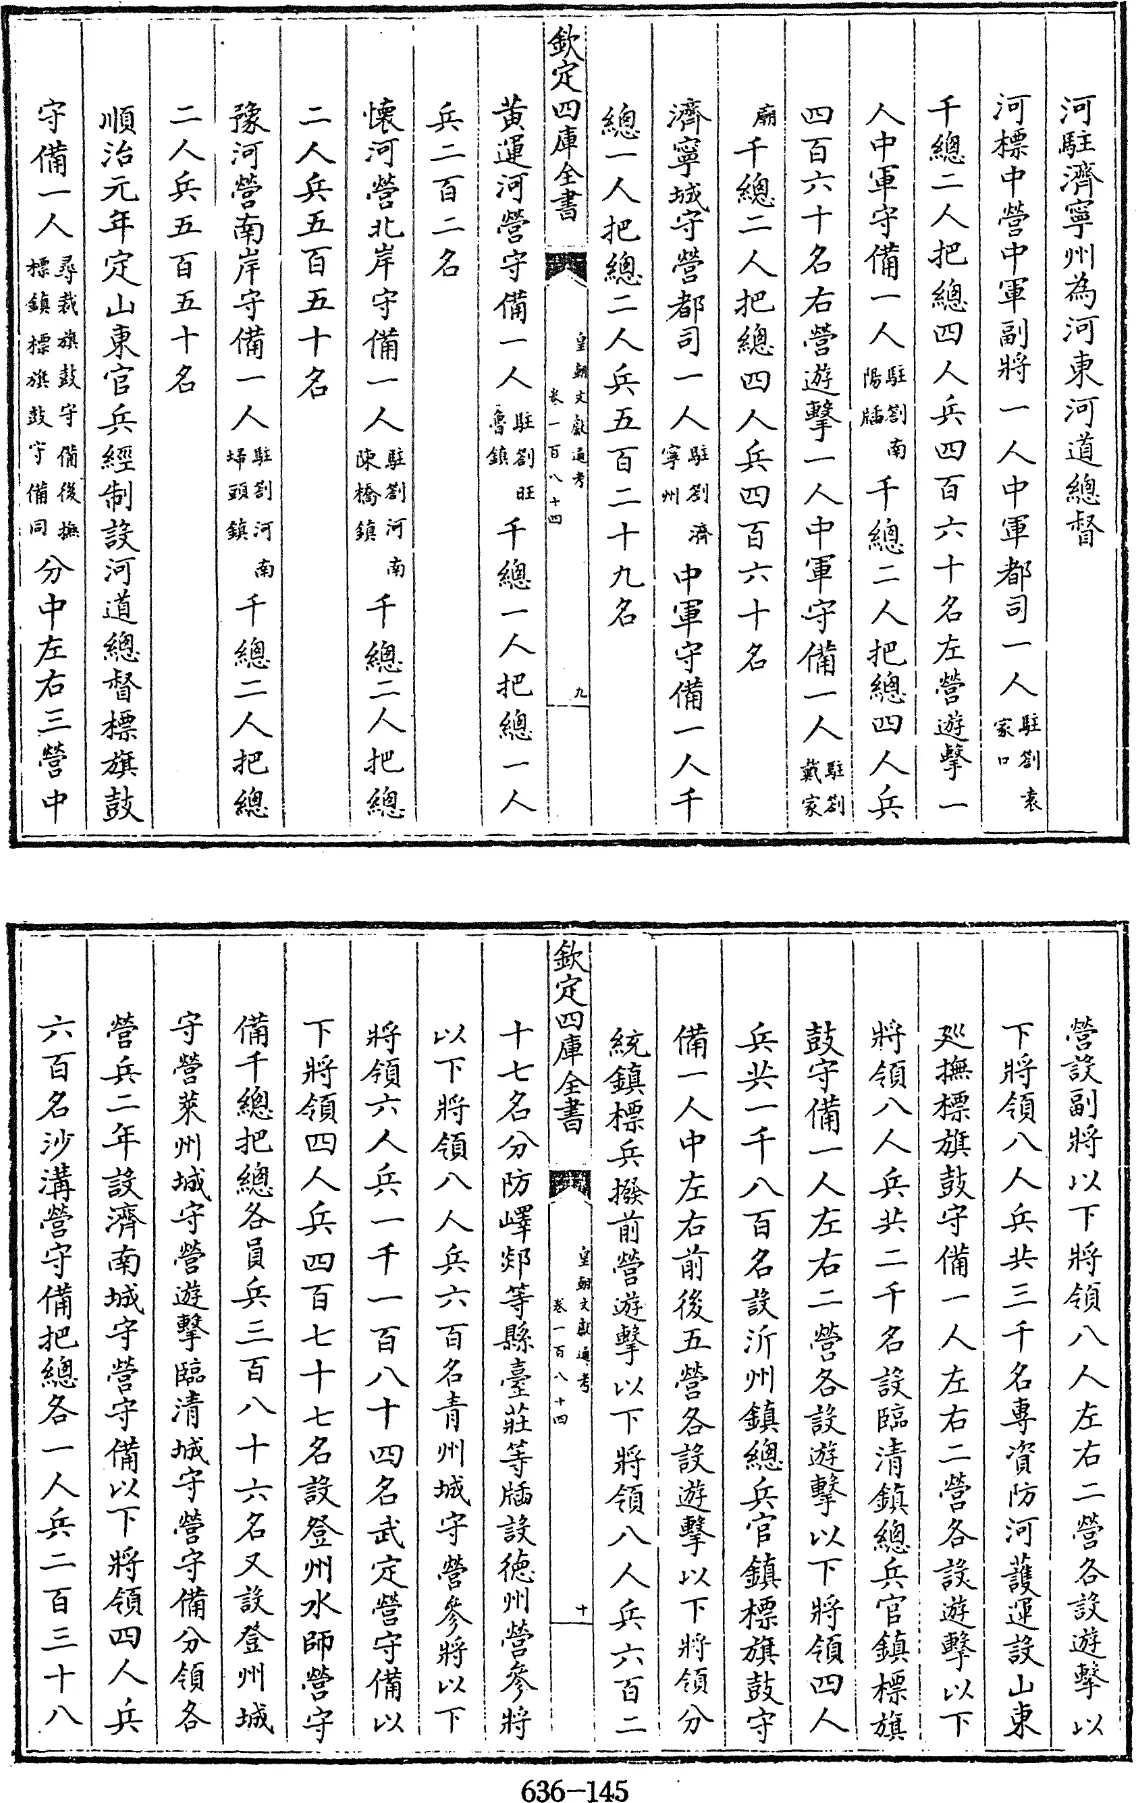 河駐濟寧州為河東河道總督
河標中營中軍副將一人中軍都司一人駐劄袁家口
千總二人把總四人兵四百六十名左營遊擊一
人中軍守備一人駐劄南陽牐千總二人把總四人兵
四百六十名右營遊擊一人中軍守備一人駐劄戴家
廟千總二人把總四人兵四百六十名
濟寧城守營都司一人駐劄濟寧州中軍守備一人千
總一人把總二人兵五百二十九名
欽定四庫全書 皇朝文獻通考 卷一百八十四 九
黃運河營守備一人駐劄旺魯鎮千總一人把總一人
兵二百二名
懷河營北岸守備一人駐劄河南陳橋鎮千總二人把總
二人兵五百五十名
豫河營南岸守備一人駐劄河南埽頭鎮千總二人把總
二人兵五百五十名
順治元年定山東官兵經制設河道總督標旗鼓
守備一人尋裁旗鼓守備後撫標鎮標旗鼓守備同分中左右三營中
營設副將以下將領八人左右二營各設遊擊以
下將領八人兵共三千名專資防河護運設山東
廵撫標旗鼓守備一人左右二營各設遊擊以下
將領八人兵共二千名設臨清鎮總兵官鎮標旗
鼓守備一人左右二營各設遊擊以下將領四人
兵共一千八百名設沂州鎮總兵官鎮標旗鼓守
備一人中左右前後五營各設遊擊以下將領分
統鎮標兵撥前營遊擊以下將領八人兵六百二
欽定四庫全書 皇朝文獻通考 卷一百八十四 十
十七名分防嶧郯等縣臺莊等牐設德州營參將
以下將領八人兵六百名青州城守營參將以下
將領六人兵一千一百八十四名武定營守備以
下將領四人兵四百七十七名設登州水師營守
備千總把總各員兵三百八十六名又設登州城
守營萊州城守營遊擊臨清城守營守備分領各
營兵二年設濟南城守營守備以下將領四人兵
六百名沙溝營守備把總各一人兵二百三十八
636-145